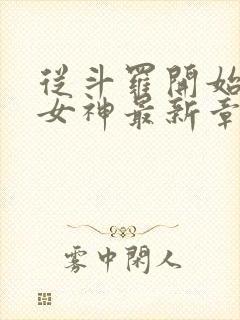 從斗羅開始
女神最新章
雾中閑人